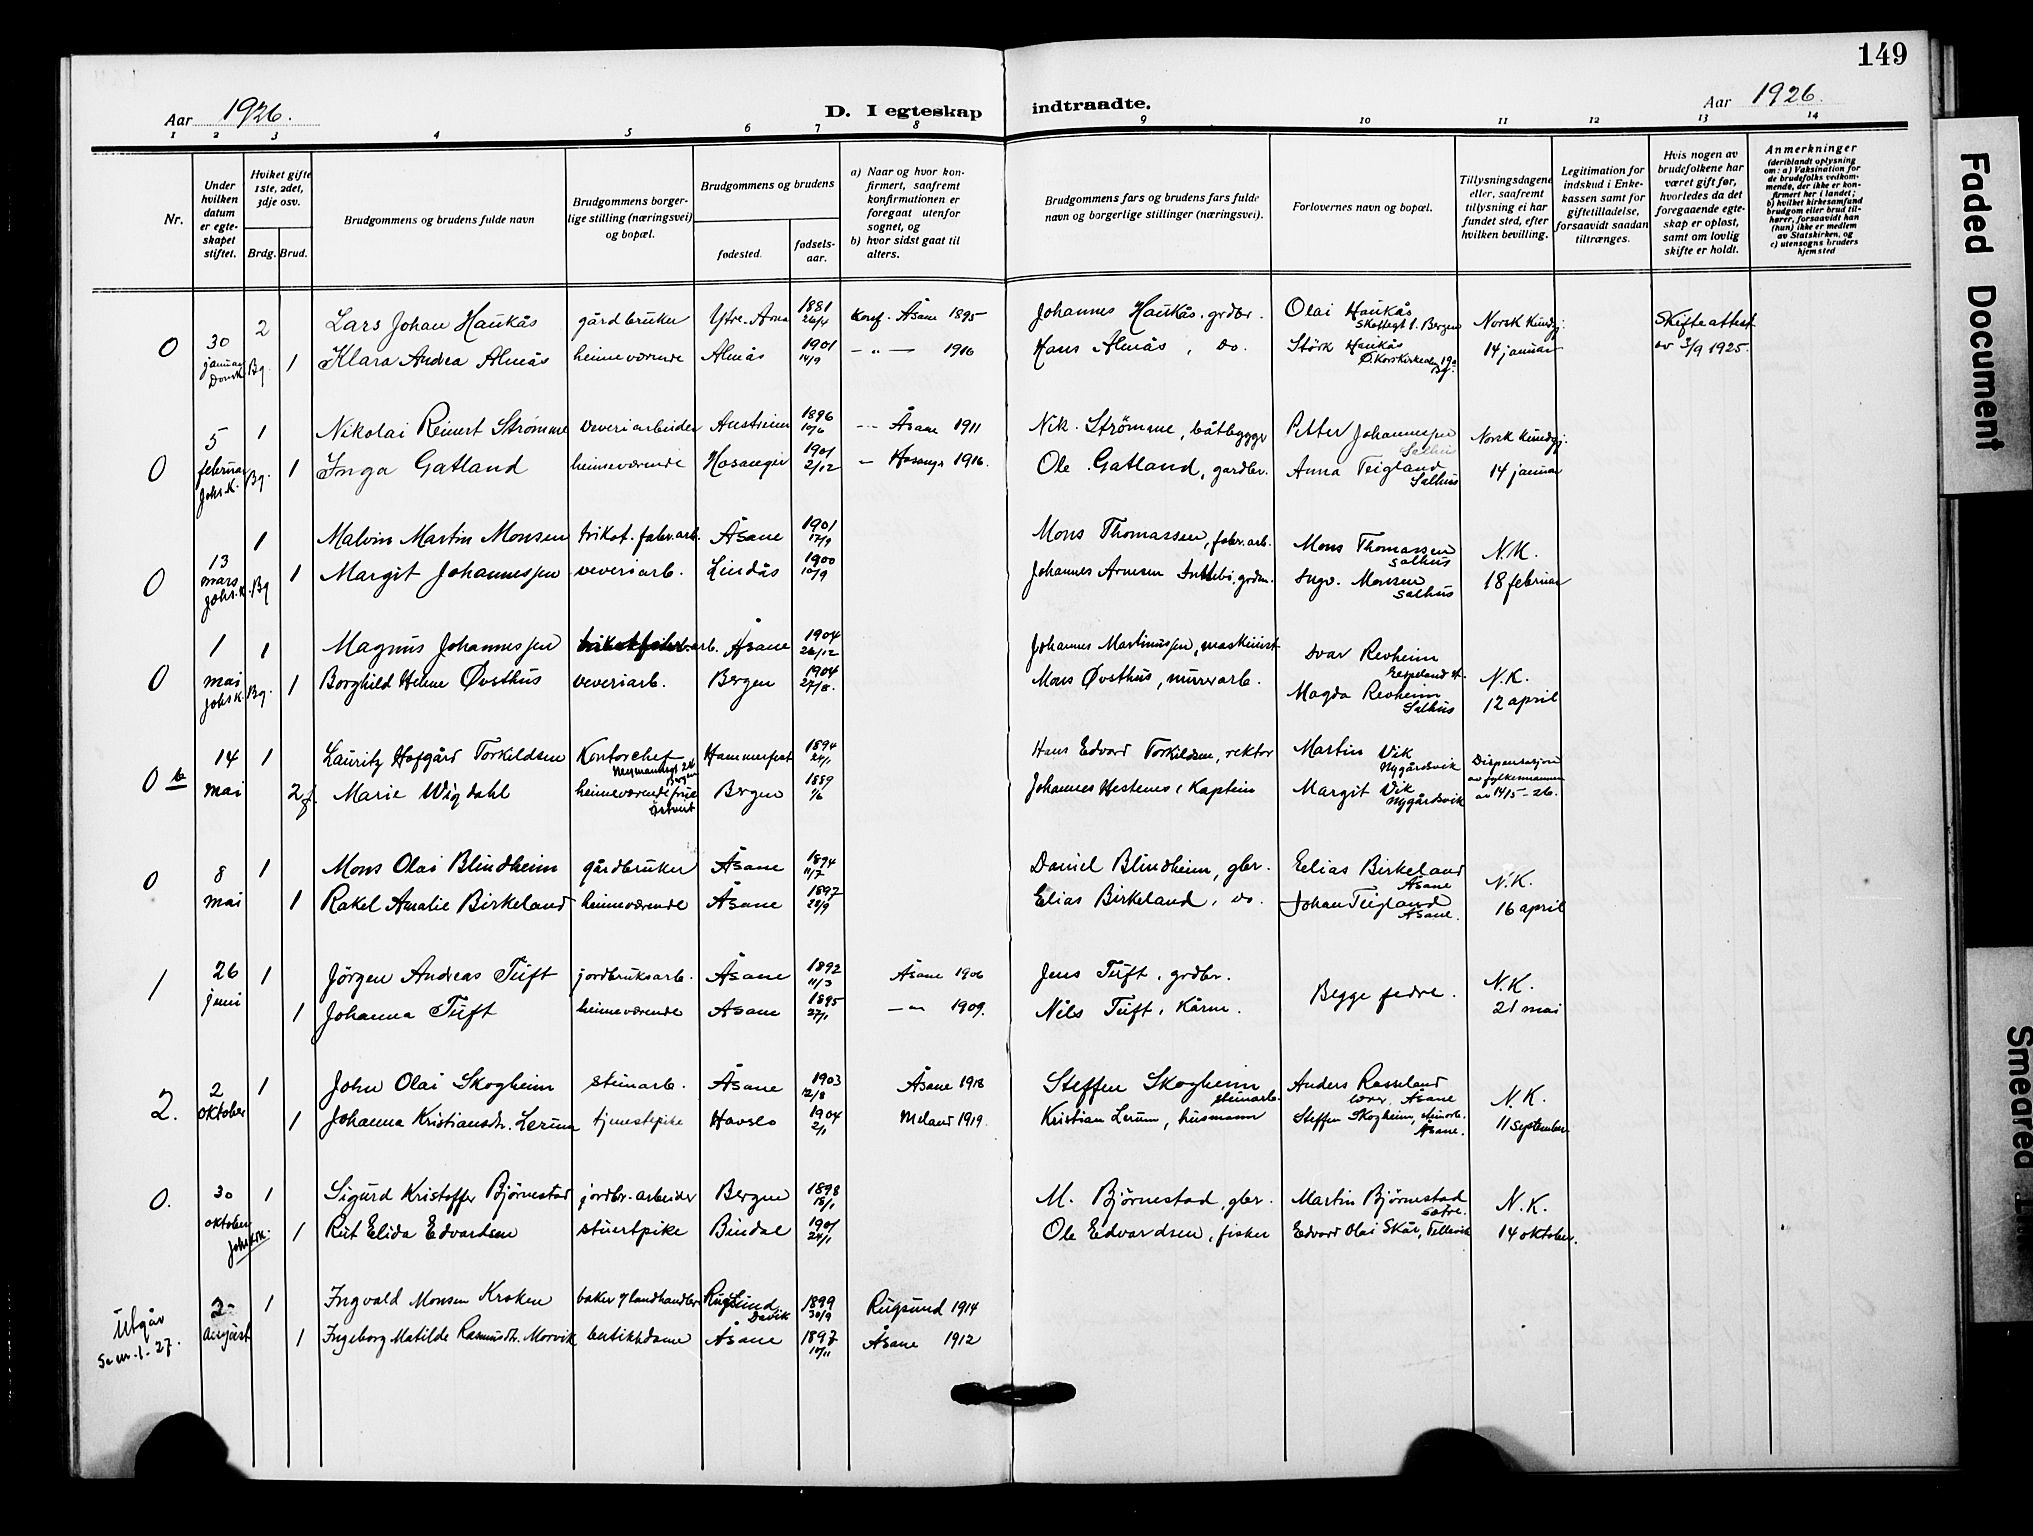 149
Aar 1926.
D. I egteskap indtraadte.
Aar 1926.
1 2 3 4 5 6 7 8 9 10 11 12 13 14
Nr.
Under hvilken datum er egteskapet stiftet.
Hviket gifte 1ste, 2det, 3dje osv.
Brdg. Brud.
Brudgommens og brudens fulde navn
Brudgommens borgerlige stilling (næringsvei) og bopæl.
Brudgommens og brudens
fødested.
fødselsaar.
a) Naar og hvor konfirmert, saafremt konfirmationen er foregaat utenfor sognet, og
b) hvor sidst gaat til alters.
Brudgommens fars og brudens fars fulde navn og borgerlige stillinger (næringsvei).
Forlovernes navn og bopæl.
Tillysningsdagene eller, saafremt tillysning ei har fundet sted, efter hvilken bevilling.
Legitimation for indskud i Enkekassen samt for giftetilladelse, forsaavidt saadan tiltrænges.
Hvis nogen av brudefolkene har været gift før, hvorledes da det foregaaende egteskap er opløst, samt om lovlig skifte er holdt.
Anmerkninger
(deriblandt oplysning om: a) Vaksination for de brudefolks vedkommende, der ikke er konfirmert her i landet;
b) hvilket kirkesamfund brudgom eller brud tilhører, forsaavidt han (hun) ikke er medlem av Statskirken, og
c) utensogns bruders hjemsted
0 30 januar Domk. Bg. 2 Lars Johan Haukås gårdbruker Ytre-Arna 1881 26/4 Konf. Åsane 1895 Johannes Haukås, grdbr. Olai Haukås Skottegt 1. Bergen Norsk Kundgj. Skifteattest
1 Klara Andrea Almås heimeværende Almås 1901 14/9 — „ — 1916 Hans Almås, do. Størk Haukås Ø Korskirkealm 19a Bg. 14 januar av 3/9 1925.
0 5 februar Johs K. Bg. 1 Nikolai Reinert Strømme veveriarbeider Austrheim 1896 10/6 Åsane 1911 Nik. Strömme, båtbygger Petter Johannessen Salhus Norsk Kundgj.
1 Inga Gatland heimeværende Hosanger 1901 2/12 Hosanger 1916. Ole Gatland, gardbr. Anna Teigland Salhus 14 januar
0 13 mars Johs. K. Bg 1 Malvin Martin Monsen trikot. fabr. arb. Åsane 1901 17/9 Mons Thomassen, fabr. arb. Mons Thomassen Salhus N.K.
1 Margit Johannessen veveriarb. Lindås 1900 10/9 Johannes Arnesen Ingv. Monsen Salhus 18 februar
0 1 mai Johs K. Bg. 1 Magnus Johannessen arb. Åsane 1904 26/12 Johannes Martinussen, maskinist Ivar Revheim Espeland st. N.K.
1 Borghild Helene Øvsthus veveriarb. Bergen 1904 27/8. Mons Øvsthus, murerarb. Magda Revheim Salhus 12 april
0 b 14 mai 1 Lauritz Hofgård Torkildsen Kontorchef Neumannsgt 24 Bergen Hammerfest 1894 24/1 Hans Edvard Torkildsen, rektor Martin Vik Nygårdsvik Dispensasjon av fylkesmannen
2 f. Marie Wigdahl heimeværende frue Bergen 1889 1/6 Johannes Hestenes, Kaptein Margit Vik Nygårdsvik av 14/5-26.
0 8 mai 1 Mons Olai Blindheim gårdbruker Åsane 1894 11/7 Daniel Blindheim, gbr. Eelias Birkeland Åsane N.K.
1 Rakel Amalie Birkeland heimeværende Åsane 1897 28/9 Elias Birkeland, do. Johan Teigland Åsane. 16 april
1 26 juni 1 Jörgen Andreas Tuft jordbruksarb. Åsane 1892 11/3 Åsane 1906 Jens Tuft, grdbr. Begge fedre. N.K.
1 Johanna Tuft heimeværende Åsane 1895 27/1 — „ — 1909. Nils Tuft, Kårm. 21 mai
2. 2 oktober 1 John Olai Skogheim steinarb. Åsane 1903 12/8 Åsane 1918 Steffen Skogheim steinarb. Anders Rosseland Åsane N.K.
1 Johanna Kristiansdr. Lerum tjenestepike Havslo 1904 2/1 Meland 1919. Kristian Lerum, husmann Steffen Skogheim, steinarb. Åsane. 11 september
0. 30 oktober Johs K. 1 Sigurd Kristoffer Bjørnestad jordbr. arbeider Bergen 1898 18/1 M. Bjørnestad, gbr. Martin Bjørnestad Sætre. N.K.
1 Rut Elida Edvardsen stuertpike Bindal 1901 24/1 Ole Edvardsen, fisker Edvard Olai Skår, Tellevik 14 oktober.
Utgår Se nr. 1-27. 2 august 1 Ingvald Monsen Kroken baker & landhandler Rugsund Davik 1899 30/9 Rugsund 1914
1 Ingeborg Matilde Rasmusdtr. Morvik butikkdame Åsane 1897 10/11 Åsane 1912
Faded Document
Smeared